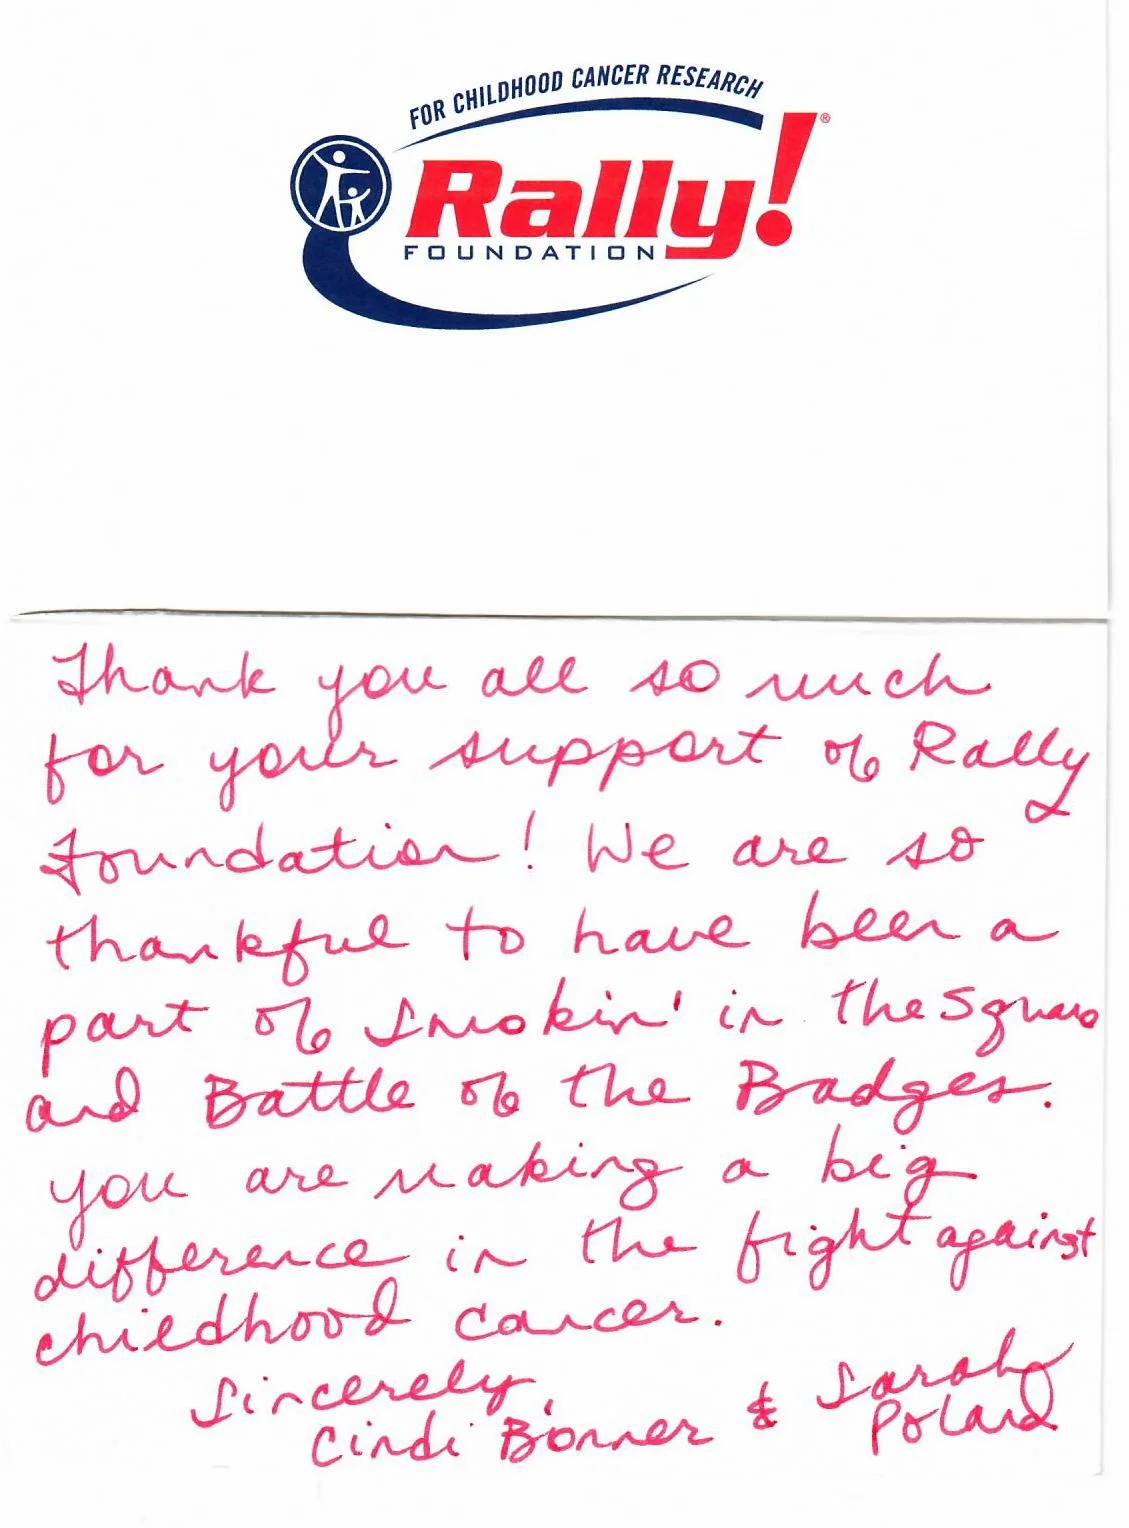 FOR CHILDHOOD CANCER RESEARCH
Rally!®
FOUNDATION
Thank you all so much
for your support of Rally
Foundation! We are so
thankful to have been a
part of Smokin' in the Square
and Battle of the Badges.
You are making a big
difference in the fight against
childhood cancer.
Sincerely,
Cindi Bonner & Sarah
Poland